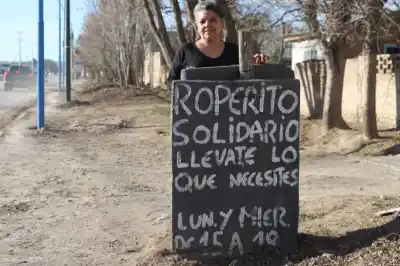 ROPERITO
SOLIDARIO
LLEVATE LO
QUE NECESITES
LUN. Y MIER.
D 15 A 19